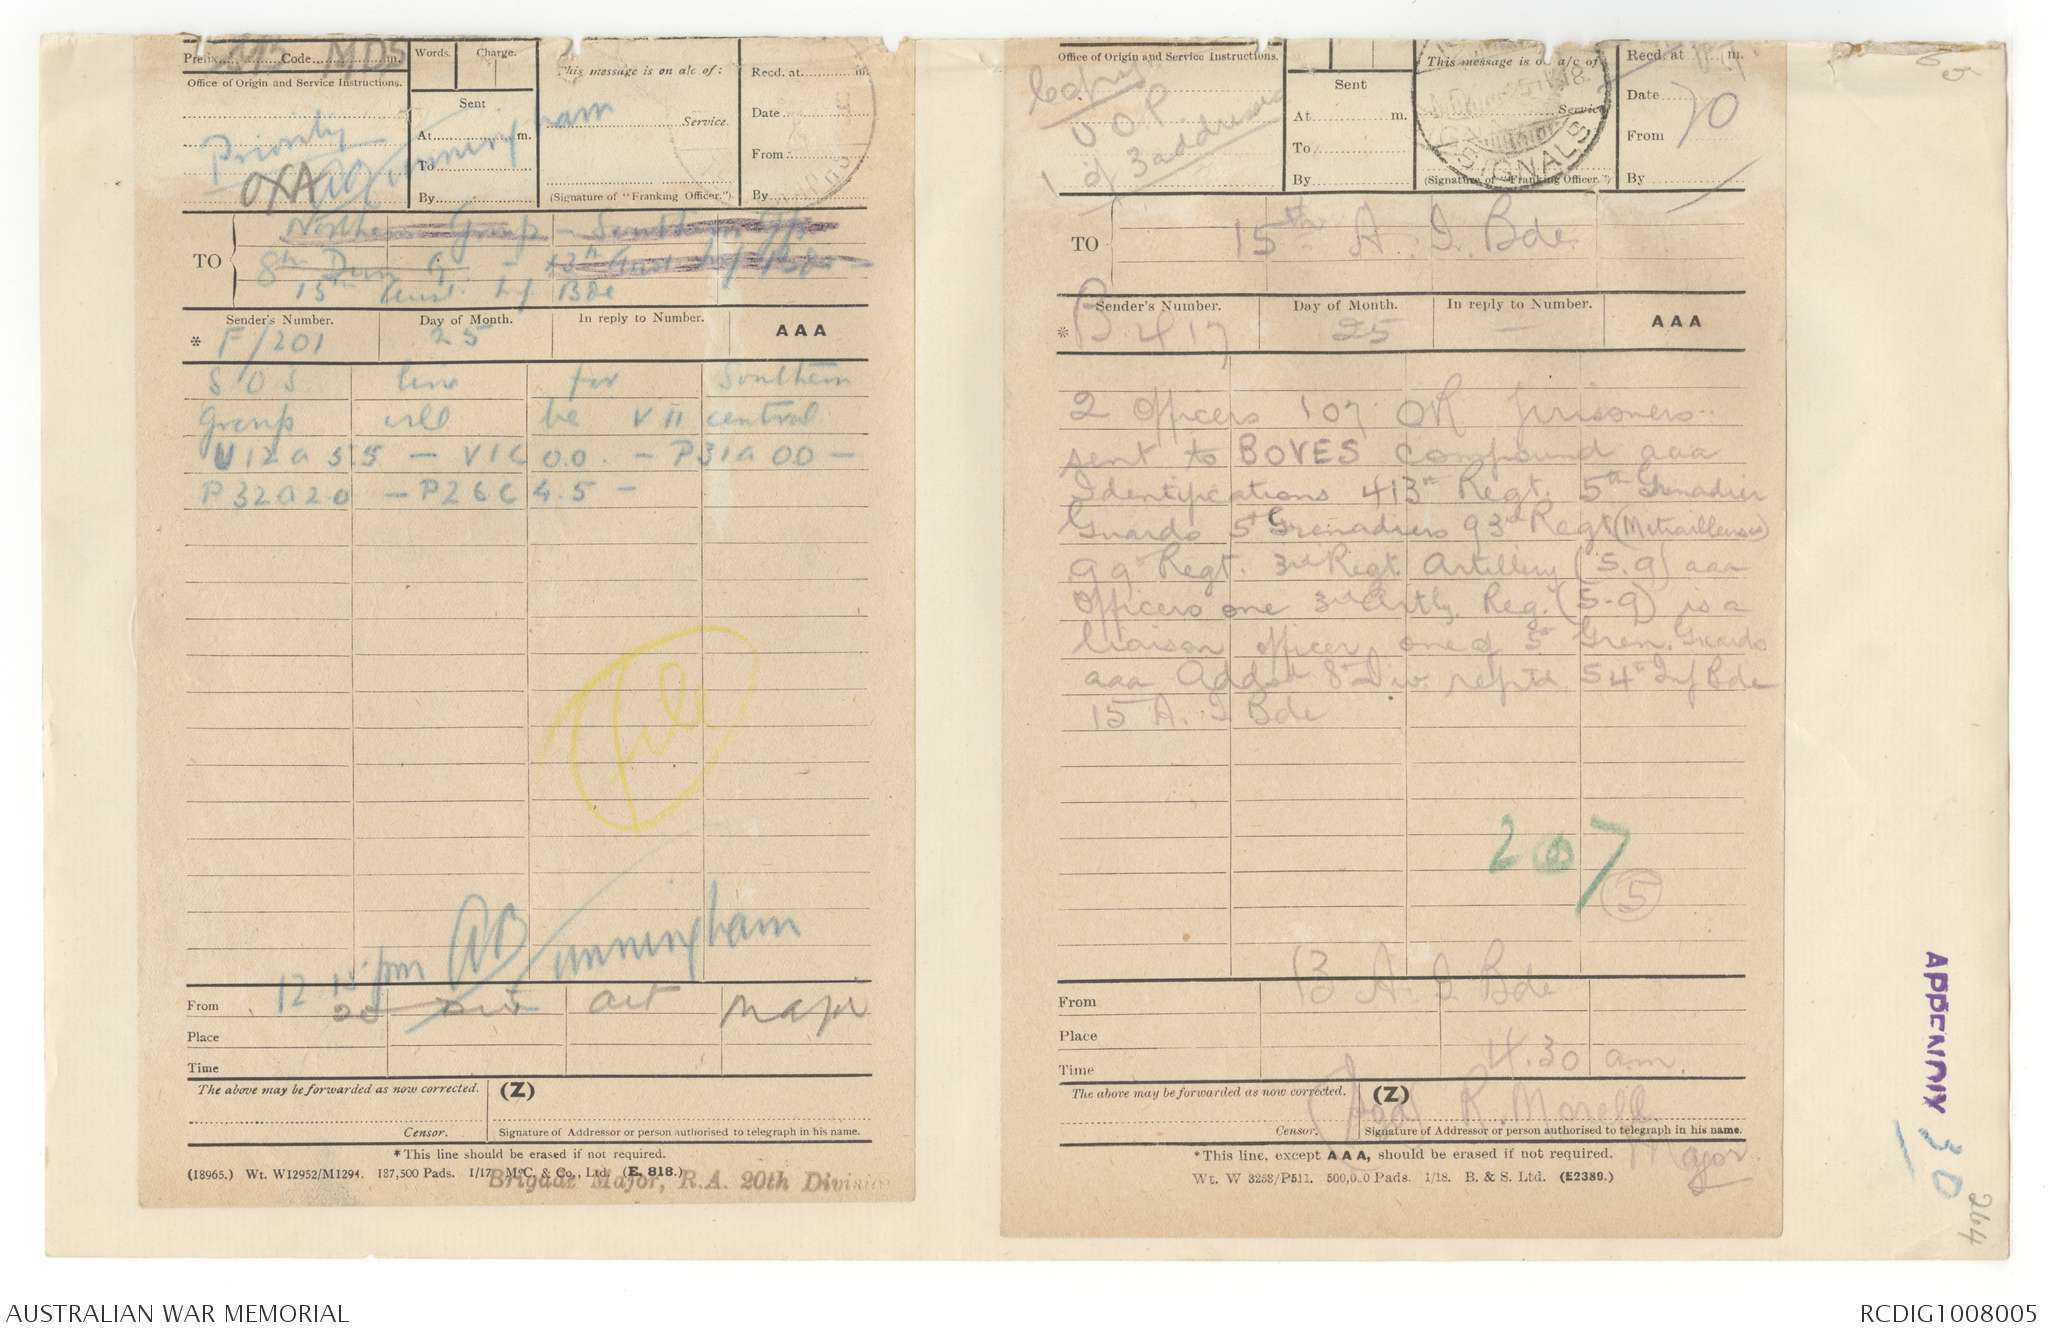 Prefix MDS Code m.
Words. Charge.
This message is on a/c of:
Recd. at m.
Office of Origin and Service Instructions.
Sent
Date
Priority
At m.
Service.
From
OXA
To
By
(Signature of "Franking Officer.")
By
AB Cunningham
TO
Northern Group – Southern Gp
8th Divn G –
15th Aust. Inf Bde
Sender's Number. Day of Month. In reply to Number. AAA
* F/201 25
SOS line for Southern
Group will be V 11 central
U12a 5.5 – V1C 0.0. – P31a 00 –
P32a20 – P26C 4.5 –
File
12 15 pm AB Cunningham
From 20 Div Art Major
Place
Time
The above may be forwarded as now corrected. (Z)
Censor. Signature of Addressor or person authorised to telegraph in his name.
* This line should be erased if not required.
(18965.) Wt. W12952/M1294. 187,500 Pads. 1/17. McC. & Co., Ltd. (E. 818.)
Brigade Major, R.A. 20th Division
Office of Origin and Service Instructions.
This message is on a/c of
Recd. at m.
Sent
Date
Copy
At m.
Service
From
of 3 addresses
To
By
(Signature of "Franking Officer.")
By
SIGNALS
TO 15th A. I. Bde.
Sender's Number. Day of Month. In reply to Number. AAA
* B 417 25 —
2 Officers 107 OR prisoners
sent to BOVES compound aaa
Identifications 413th Regt. 5th Grenadier
Guards 5th Grenadiers 93rd Regt (Metrailleuses)
99th Regt. 3rd Regt. Artillery (5.9) aaa
Officers one 3rd Artly. Reg. (5.9) is a
liaison officer one of 5th Gren. Guards
aaa Addsd 8th Div. reptd 54th Inf Bde
15 A. I Bde
207
5
From 13 A. I Bde
Place
Time 4.30 am.
The above may be forwarded as now corrected. (Z)
R. Morell
Censor. Signature of Addressor or person authorised to telegraph in his name.
Major
* This line, except AAA, should be erased if not required.
Wt. W 3253/P511. 500,000 Pads. 1/18. B. & S. Ltd. (E2389.)
APPENDIX 30
264
AUSTRALIAN WAR MEMORIAL
RCDIG1008005